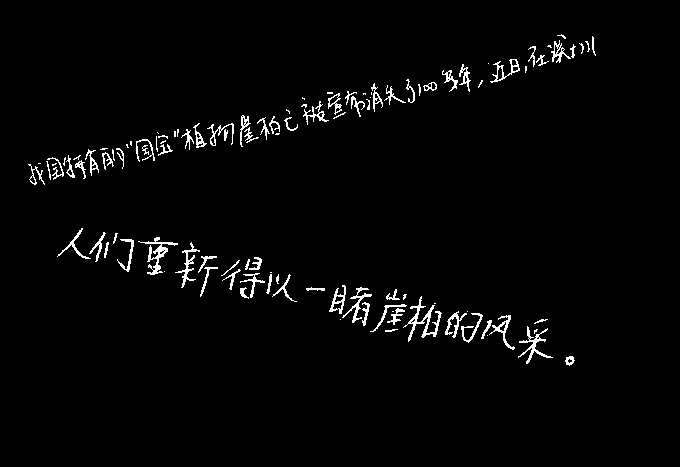 我国特有的“国宝”植物崖柏已被宣布消失了100多年，近日，在深圳
人们重新得以一睹崖柏的风采。